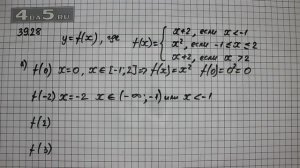 4a5
GDZ.RU
3928
y=f(x), где f(x)={ x+2, если x<-1
x², если -1≤x≤2
x+2, если x>2
в) f(0) x=0, x∈[-1,2] ⇒ f(x)=x² f(0)=0²=0
f(-2) x=-2 x∈(-∞;-1) или x<-1
f(2)
f(3)